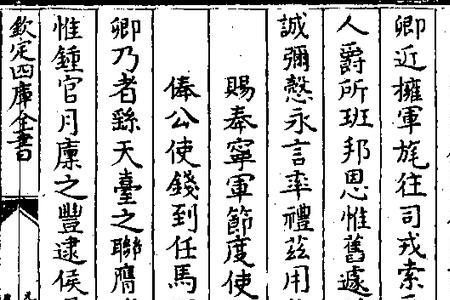 卿近擁軍旄往司戎索
人爵所班邦恩惟舊遽
誠彌慤永言率禮茲用
賜奉寧軍節度使
俸公使錢到任馬
卿乃者繇天臺之聯膺
惟鍾官月廩之豐逮侯
欽定四庫全書